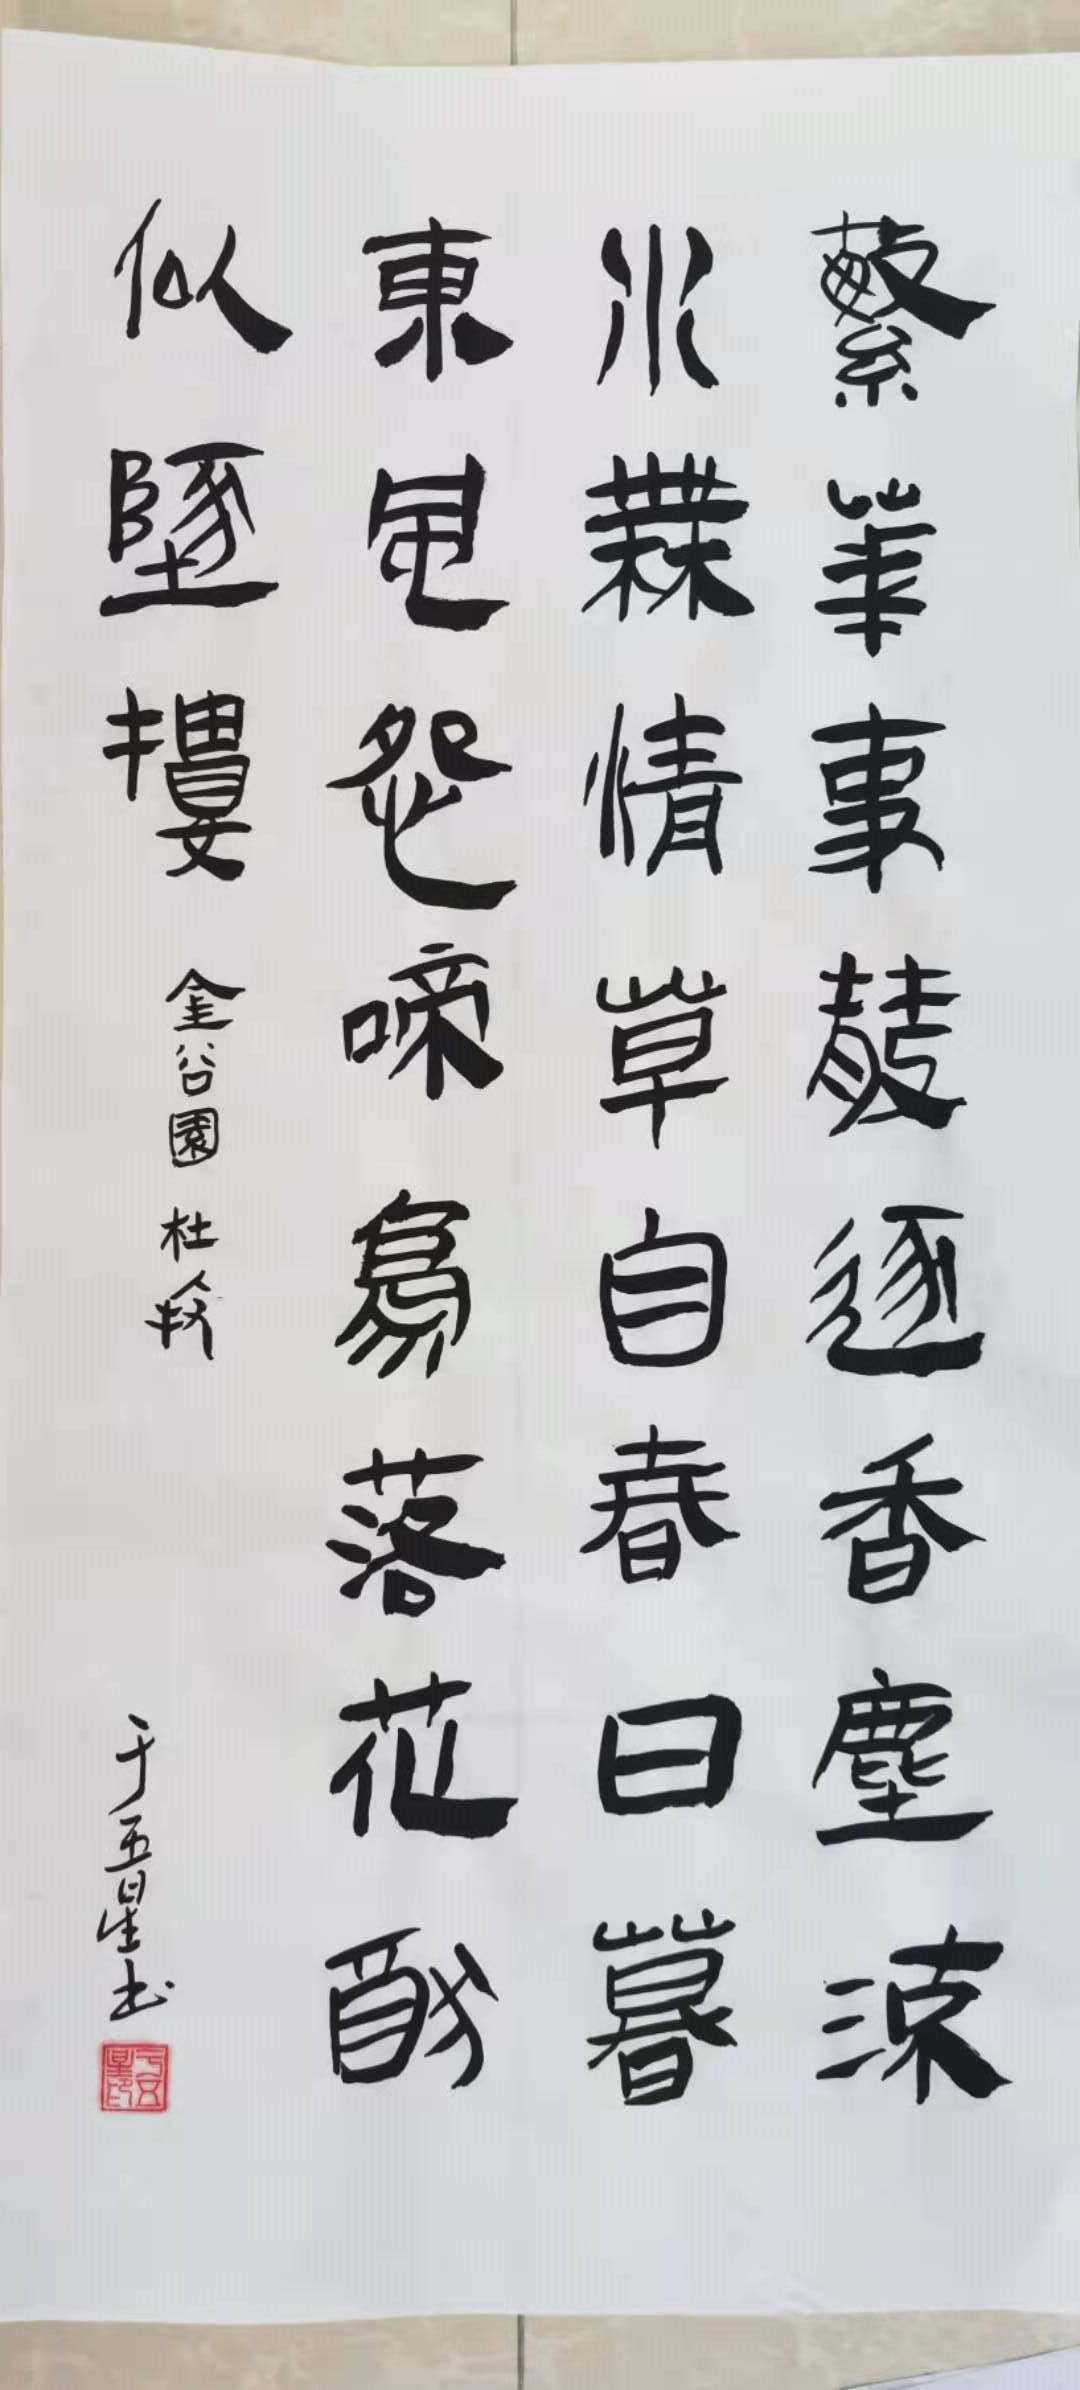 繁華事散逐香塵流
水無情草自春日暮
東風怨啼鳥落花猶
似墜樓 金谷園 杜牧
于五星书
于五星印